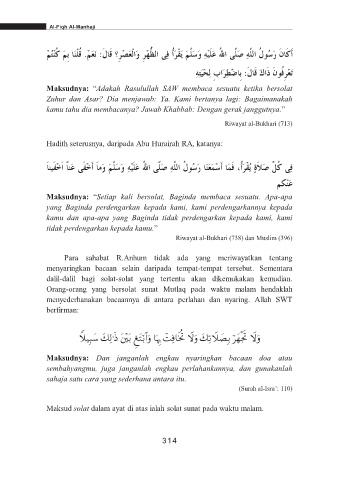 Al-Fiqh Al-Manhaji
أَكَانَ رَسُولُ اللَّهِ صَلَّى اللهُ عَلَيْهِ وَسَلَّمَ يَقْرَأُ فِى الظُّهْرِ وَالْعَصْرِ؟ قَالَ: نَعَمْ. قُلْنَا: بِمَ كُنْتُمْ
تَعْرِفُونَ ذَاكَ قَالَ: بِاضْطِرَابِ لِحْيَتِهِ
Maksudnya: “Adakah Rasulullah SAW membaca sesuatu ketika bersolat
Zuhur dan Asar? Dia menjawab: Ya. Kami bertanya lagi: Bagaimanakah
kamu tahu dia membacanya? Jawab Khabbab: Dengan gerak janggutnya.”
Riwayat al-Bukhari (713)
Hadith seterusnya, daripada Abu Hurairah RA, katanya:
فِى كُلِّ صَلاَةٍ يُقْرَأُ، فَمَا أَسْمَعَنَا رَسُولُ اللَّهِ صَلَّى اللهُ عَلَيْهِ وَسَلَّمَ وَمَا أَخْفَى عَنَّا أَخْفَيْنَا
عَنْكُم
Maksudnya: “Setiap kali bersolat, Baginda membaca sesuatu. Apa-apa
yang Baginda perdengarkan kepada kami, kami perdengarkannya kepada
kamu dan apa-apa yang Baginda tidak perdengarkan kepada kami, kami
tidak perdengarkan kepada kamu.”
Riwayat al-Bukhari (738) dan Muslim (396)
Para sahabat R.Anhum tidak ada yang meriwayatkan tentang
menyaringkan bacaan selain daripada tempat-tempat tersebut. Sementara
dalil-dalil bagi solat-solat yang tertentu akan dikemukakan kemudian.
Orang-orang yang bersolat sunat Mutlaq pada waktu malam hendaklah
menyederhanakan bacaannya di antara perlahan dan nyaring. Allah SWT
berfirman:
وَلَا تَجْهَرْ بِصَلَاتِكَ وَلَا تُخَافِتْ بِهَا وَٱبْتَغِ بَيْنَ ذَٰلِكَ سَبِيلًا
Maksudnya: Dan janganlah engkau nyaringkan bacaan doa atau
sembahyangmu, juga janganlah engkau perlahankannya, dan gunakanlah
sahaja satu cara yang sederhana antara itu.
(Surah al-Isra’: 110)
Maksud solat dalam ayat di atas ialah solat sunat pada waktu malam.
314